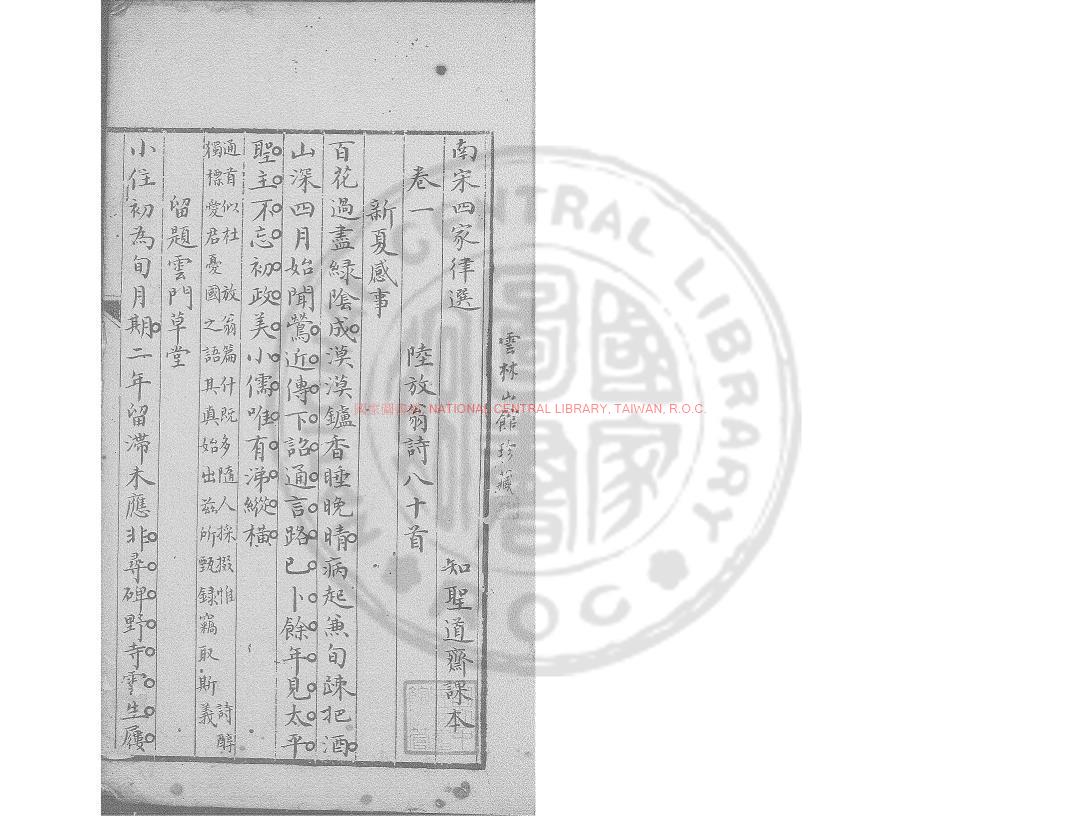 雲林山館珍藏
南宋四家律選　知聖道齋課本
卷一　陸放翁詩八十首
新夏感事
百花過盡綠陰成漠漠鑪香睡晚晴病起兼旬疎把酒
山深四月始聞鶯近傳下詔通言路已卜餘年見太平
聖主不忘初政美小儒唯有涕縱橫
通首似杜 放翁篇什既多隨人採掇惟
獨標愛君憂國之語其真始出茲所甄錄竊取斯義
詩醇
留題雲門草堂
小住初為旬月期二年留滯未應非尋碑野寺雲生屨
國家圖書館, NATIONAL CENTRAL LIBRARY, TAIWAN, R.O.C.
NATIONAL CENTRAL LIBRARY
ROC